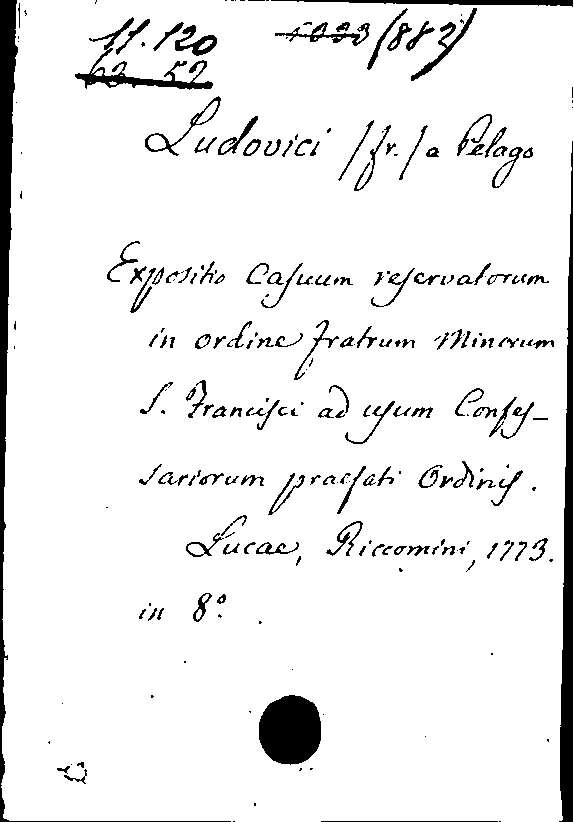 11.120 1033 (883)
63.52
Ludovici /fr./ a Pelago
Expositio Casuum reservatorum
in ordine fratrum Minorum
S. Francisci ad usum Confes-
sariorum praefati Ordinis.
Lucae, Riccomini, 1773.
in 8°.